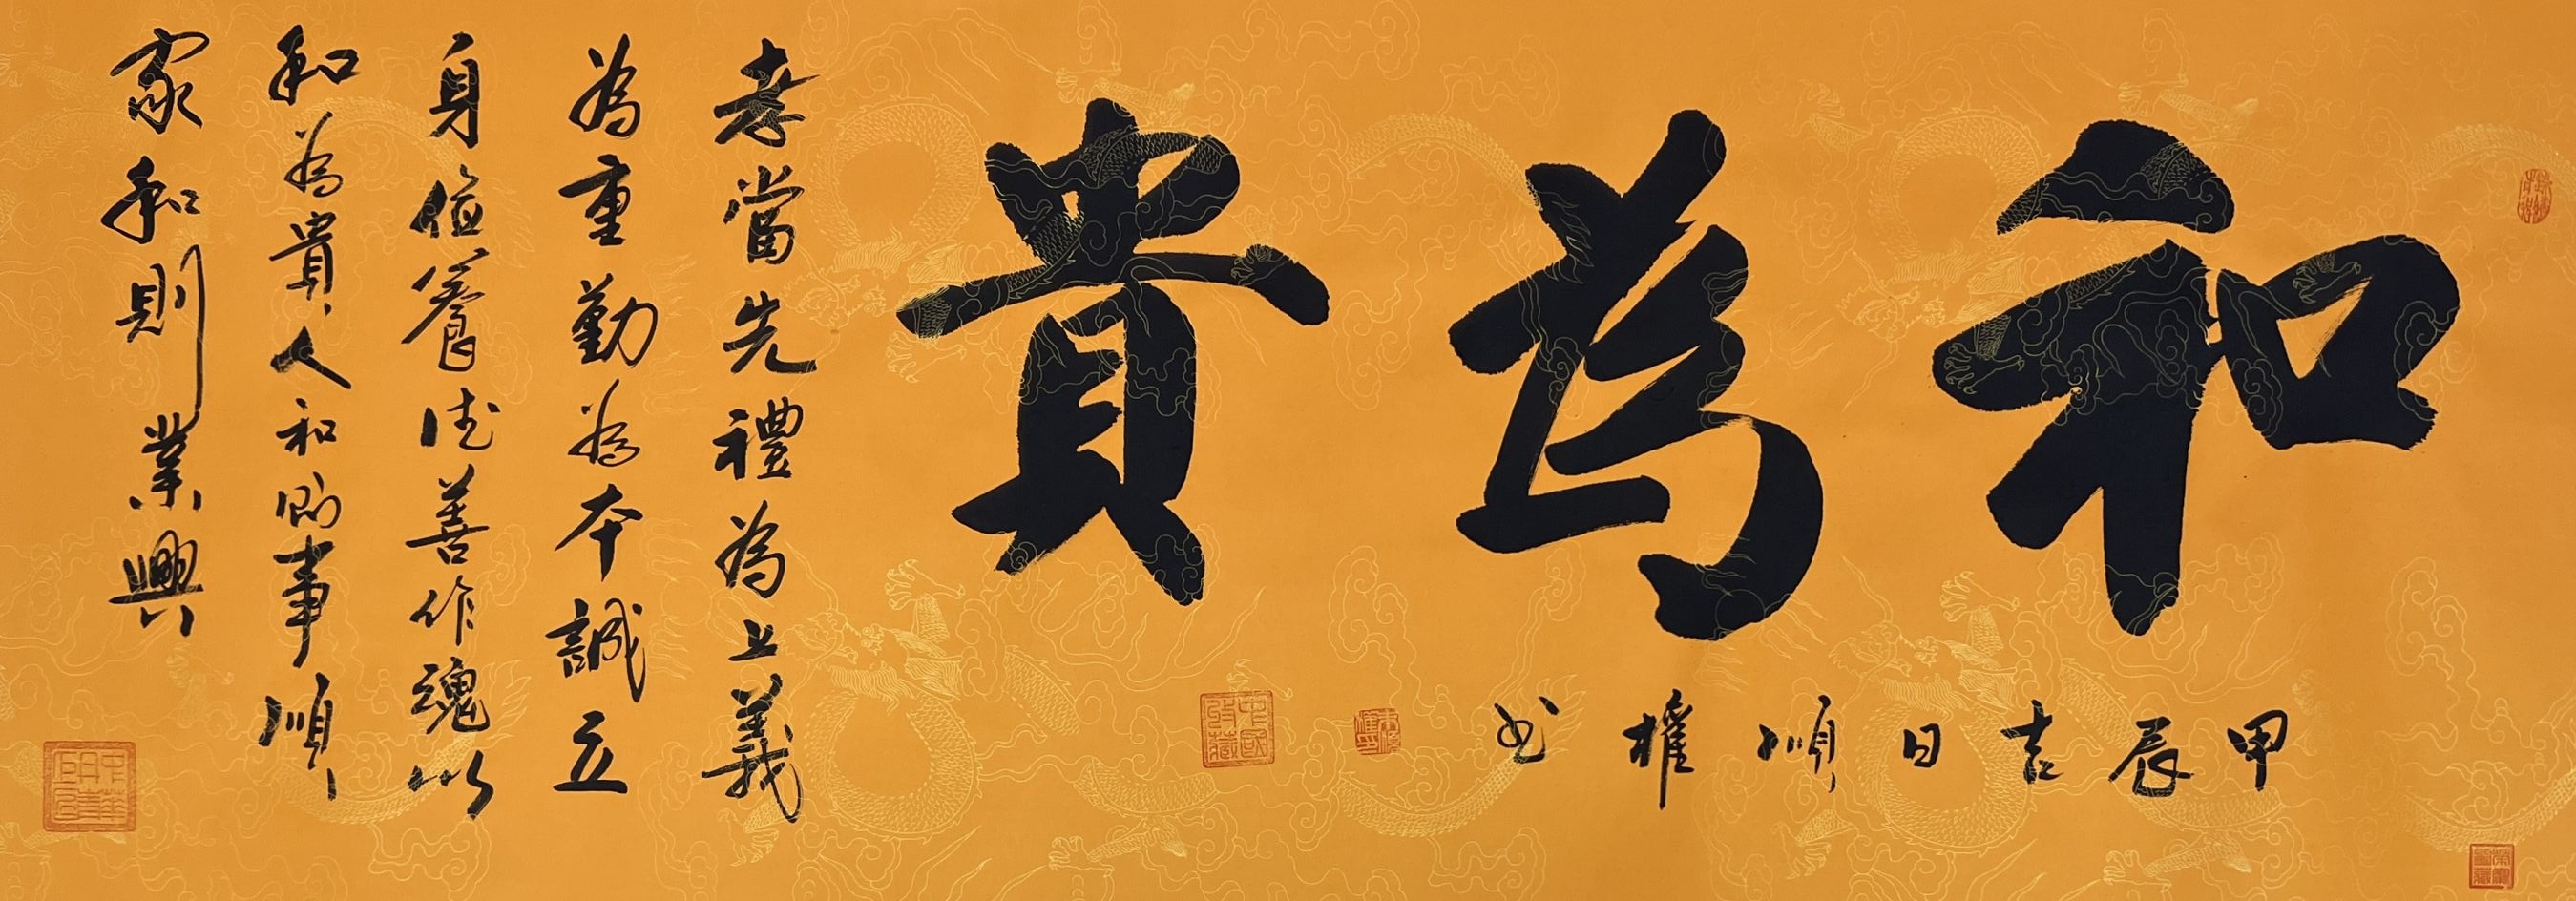 和為貴
甲辰吉日順權书
孝當先禮為上義
為重勤為本誠立
身俭養德善作魂以
和為貴人和则事順
家和則業興